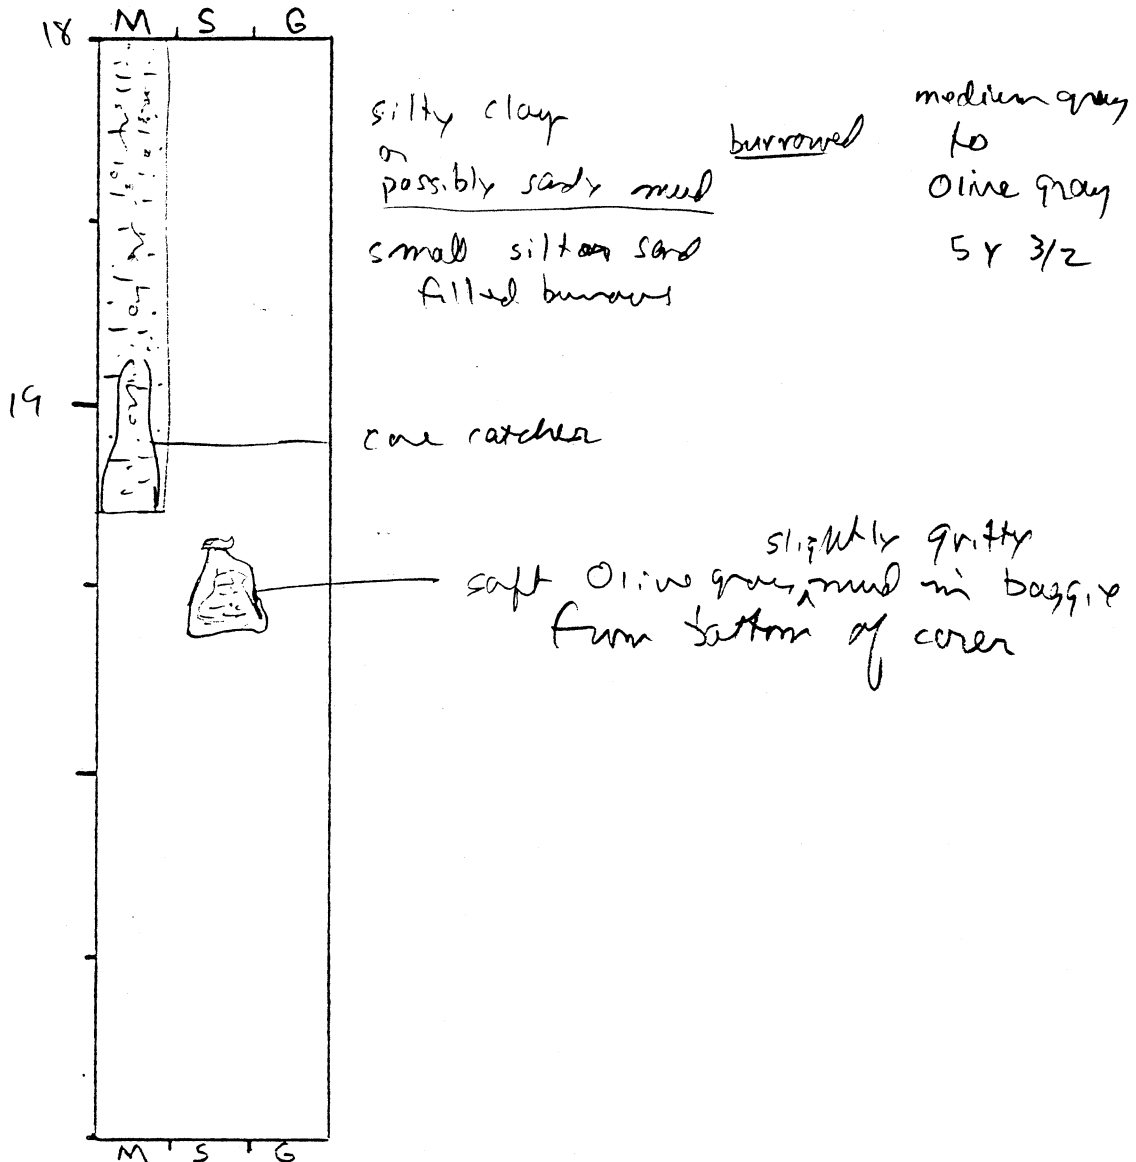 18 M S G
silty clay
or
possibly sandy mud
burrowed
medium gray
to
Olive gray
5Y 3/2
small silt or sand
filled burrows
19
core catcher
slightly gritty
soft Olive gray mud in baggie
from bottom of corer
M S G